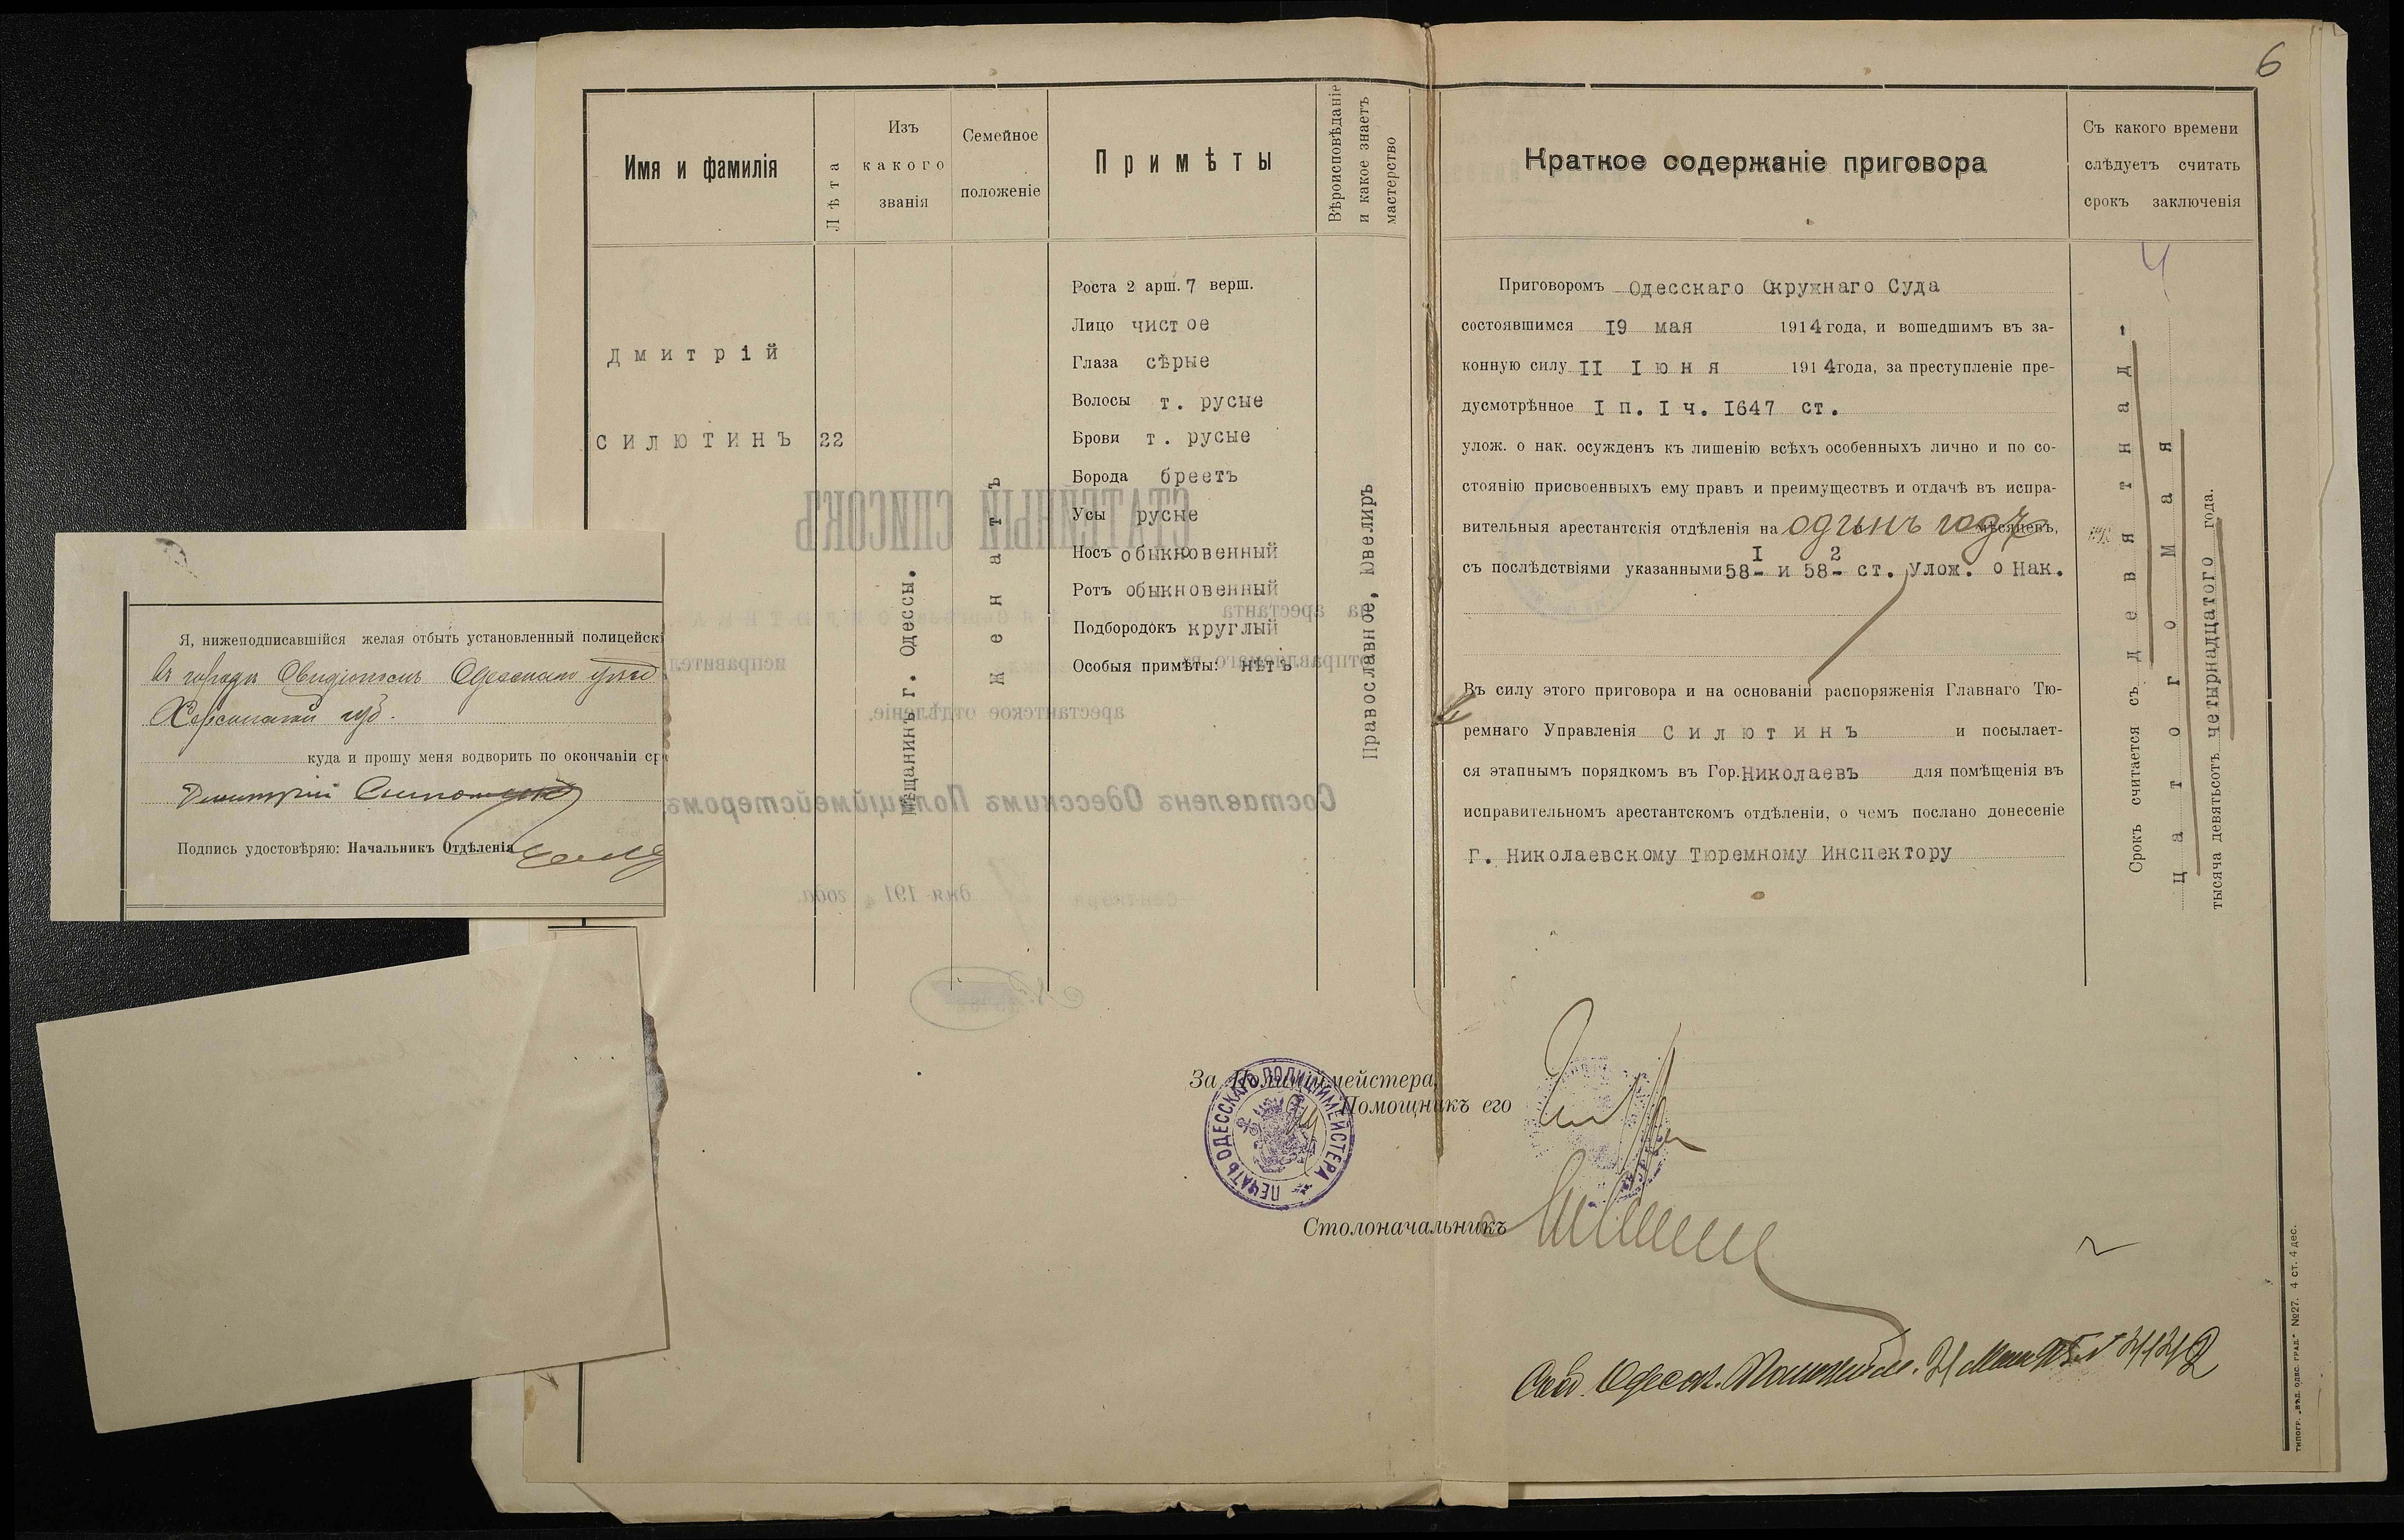 6
Имя и фамилія
Лѣта
Изъ
какого
званія
Семейное
положеніе
Примѣты
Вѣроисповѣданіе
и какое знаетъ
мастерство
Краткое содержаніе приговора
Съ какого времени
слѣдуетъ считать
срокъ заключенія
Дмитрій
СИЛЮТИНЪ
22
Мѣщанинъ г. Одессы.
Женатъ
Роста 2 арш. 7 верш.
Лицо чистое
Глаза сѣрые
Волосы т. русые
Брови т. русые
Борода бреетъ
Усы русые
Носъ обыкновенный
Ротъ обыкновенный
Подбородокъ круглый
Особыя примѣты: нѣтъ
Православное, Ювелиръ
Приговоромъ Одесскаго Окружнаго Суда
состоявшимся I9 мая 1914 года, и вошедшимъ въ за-
конную силу II Іюня 1914 года, за преступленіе пре-
дусмотрѣнное I п. I ч. I647 ст.
улож. о нак. осужденъ къ лишенію всѣхъ особенныхъ лично и по со-
стоянію присвоенныхъ ему правъ и преимуществъ и отдачѣ въ испра-
вительныя арестантскія отдѣленія на одинъ годъ мѣсяцевъ,
съ послѣдствіями указанными 58-I и 58-2 ст. Улож. о Нак.
Въ силу этого приговора и на основаніи распоряженія Главнаго Тю-
ремнаго Управленія Силютинъ и посылает-
ся этапнымъ порядкомъ въ Гор. Николаевъ для помѣщенія въ
исправительномъ арестантскомъ отдѣленіи, о чемъ послано донесеніе
г. Николаевскому Тюремному Инспектору
Срокъ считается съ девятнад-
цатого Мая
тысяча девятьсотъ четырнадцатого года.
Я, нижеподписавшійся желая отбыть установленный полицейскі
въ городѣ Овидіополѣ Одесскаго уѣзд
Херсонской губ.
куда и прошу меня водворить по окончаніи ср
Дмитрій Силютинъ
Подпись удостовѣряю: Начальникъ Отдѣленія
СТАТЕЙНЫЙ СПИСОКЪ
на арестанта
отправляемаго въ исправител
арестантское отдѣленіе.
Составленъ Одесскимъ Полиціймейстеромъ
сентября дня 191 года.
За Полиціймейстера,
Помощникъ его
ПЕЧАТЬ ОДЕССКАГО ПОЛИЦІЙМЕЙСТЕРА
Столоначальникъ
типогр. „Вѣд. Одес. Град.“ №27. 4 ст. 4 дес.